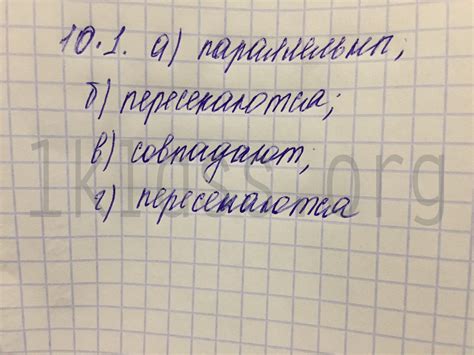 10.1. а) параллельны;
б) пересекаются;
в) совпадают;
г) пересекаются
1klass.org